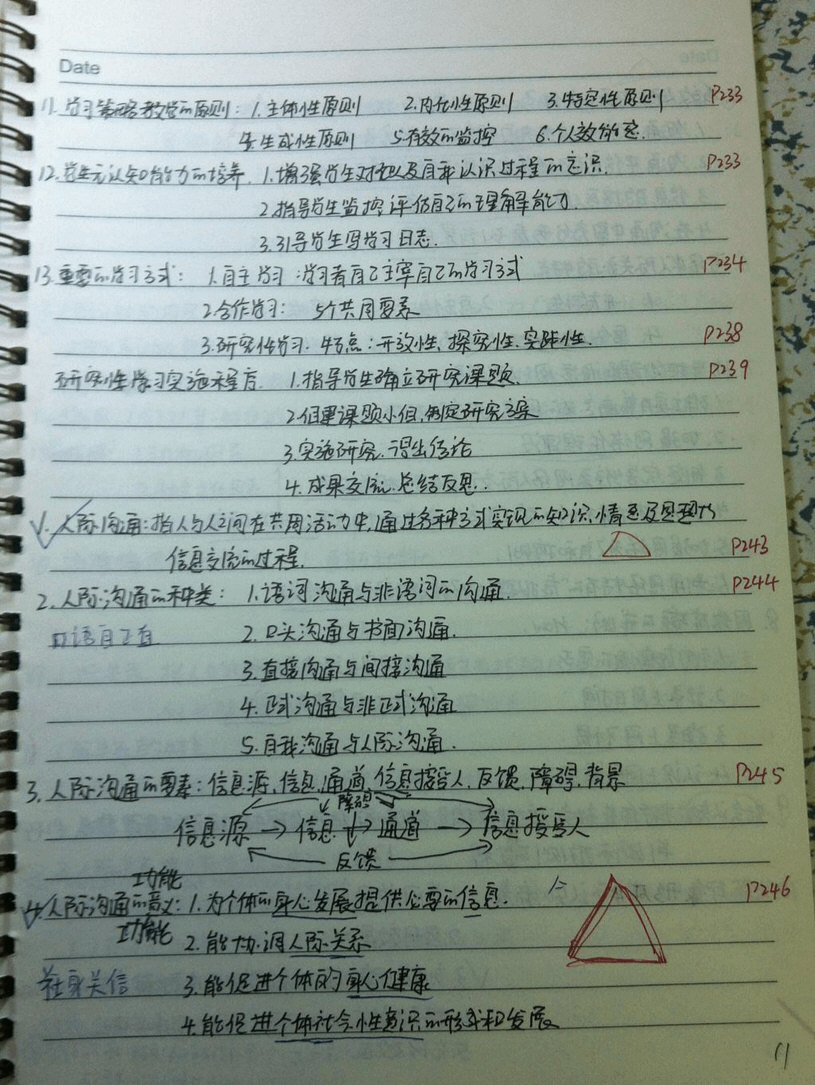 Date
11. 学习策略教学的原则: 1. 主体性原则 2. 内化性原则 3. 特定性原则 P233
4. 生成性原则 5. 有效的监控 6. 个人效能感
12. 学生元认知能力的培养 1. 增强学生对他以及自我认识过程的意识. P233
2. 指导学生监控评估自己的理解能力.
3. 引导学生写学习日志.
13. 重要的学习方式: 1. 自主学习: 学习者自己主宰自己的学习方式 P234
2. 合作学习: 5个共同要素
3. 研究性学习. 特点: 开放性、探究性、实践性. P238
研究性学习实施程序. 1. 指导学生确立研究课题. P239
2. 组建课题小组, 制定研究方案
3. 实施研究. 得出结论
4. 成果交流. 总结反思.
√. 人际沟通: 指人与人之间在共同活动中, 通过各种方式实现的知识、情感及思想的
信息交流的过程. P243
2. 人际沟通的种类: 1. 语词沟通与非语词的沟通. P244
口语自正直 2. 口头沟通与书面沟通.
3. 直接沟通与间接沟通
4. 正式沟通与非正式沟通
5. 自我沟通与人际沟通.
3. 人际沟通的要素: 信息源, 信息, 通道, 信息接受人, 反馈, 障碍, 背景 P245
障碍
信息源 → 信息 → 通道 → 信息接受人
反馈
功能
4. 人际沟通的意义: 1. 为个体的身心发展提供必要的信息. P246
功能 2. 能协调人际关系
社身关信 3. 能促进个体的身心健康
4. 能促进个体社会性意识的形成和发展
11